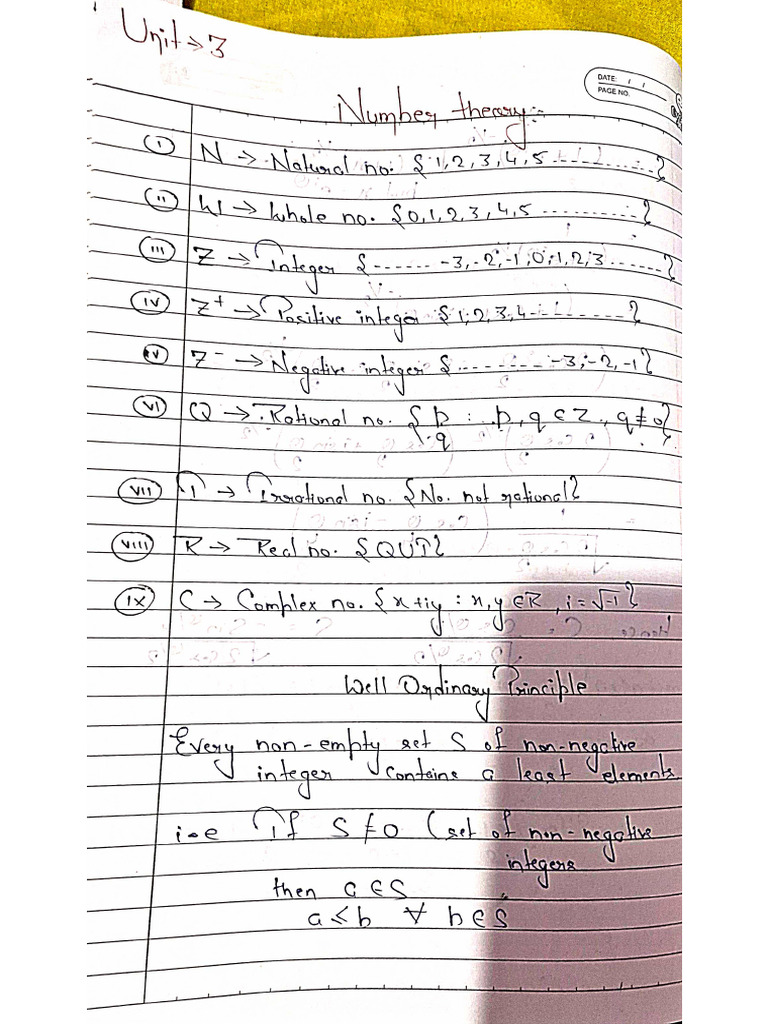 Unit → 3
DATE: / /
PAGE NO.
Number theory :-
(i) N → Natural no. {1, 2, 3, 4, 5 ............}
(ii) W → Whole no. {0, 1, 2, 3, 4, 5 ............}
(iii) Z → Integer {...... -3, -2, -1, 0, 1, 2, 3 .......}
(iv) Z⁺ → Positive integer {1, 2, 3, 4 ...........}
(v) Z⁻ → Negative integer {........... -3, -2, -1}
(vi) Q → Rational no. {p/q : p, q ∈ Z, q ≠ 0}
(vii) I → Irrational no. {No. not rational}
(viii) R → Real no. {QUI}
(ix) C → Complex no. {x + iy : x, y ∈ R, i = √-1}
Well Ordinary Principle
Every non-empty set S of non-negative
integer contains a least elements
i.e If S ≠ 0 (set of non-negative
integers
then a ∈ S
a ≤ b ∀ b ∈ S